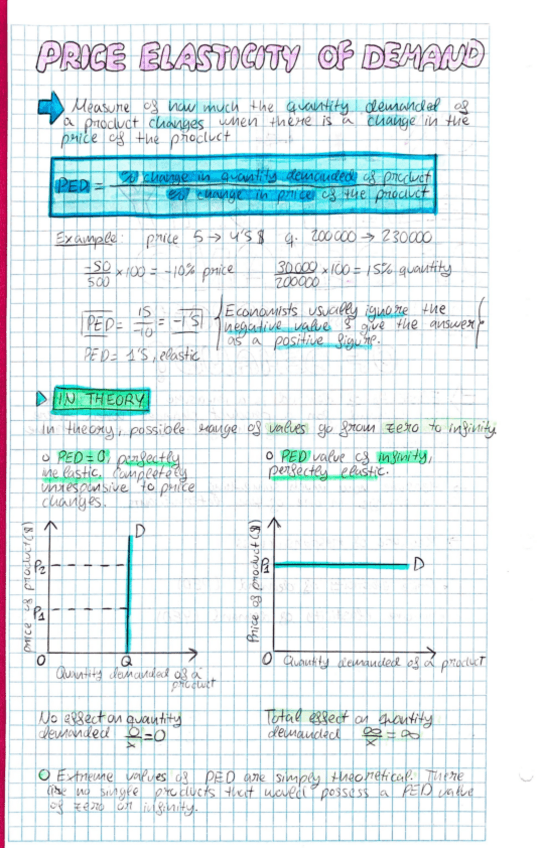 PRICE ELASTICITY OF DEMAND
Measure of how much the quantity demanded of
a product changes when there is a change in the
price of the product
PED = % change in quantity demanded of product
% change in price of the product
Example: price 5 → 4'5 $ q. 200000 → 230000
-50/500 × 100 = -10% price 30000/200000 × 100 = 15% quantity
PED = 15/-10 = -1'5
Economists usually ignore the
negative value & give the answer
as a positive figure.
PED = 1'5, elastic
IN THEORY
In theory, possible range of values go from zero to infinity
PED = 0, perfectly
inelastic, completely
unresponsive to price
changes.
PED value of infinity,
perfectly elastic.
Price of product ($)
P2
P1
D
0 Q
Quantity demanded of a
product
Price of product ($)
P1
D
0 Quantity demanded of a product
No effect on quantity
demanded 0/x = 0
Total effect on quantity
demanded ∞/x = ∞
Extreme values of PED are simply theoretical. There
are no single products that would possess a PED value
of zero or infinity.